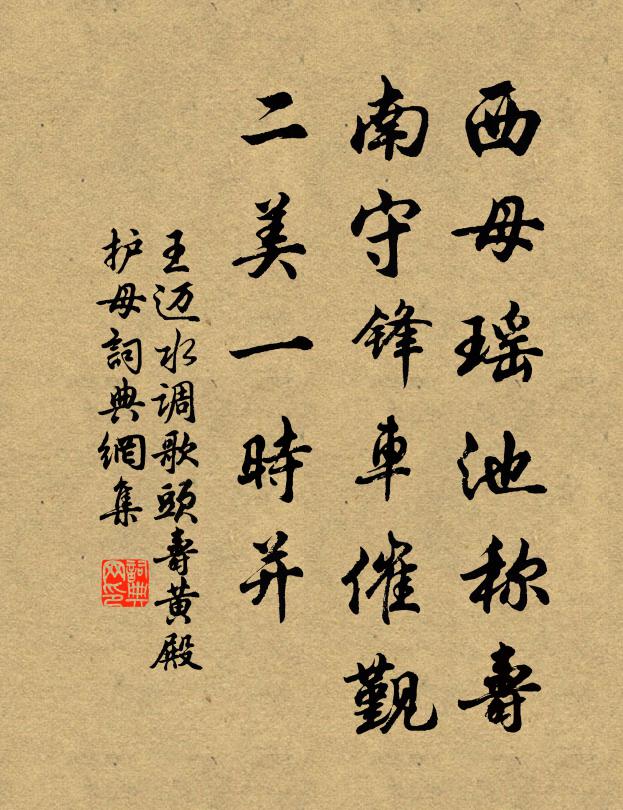 西母瑶池称壽
南守锋車催觐
二美一時并
王迈水调歌頭壽黄殿
护母詞典網集
詞典网印